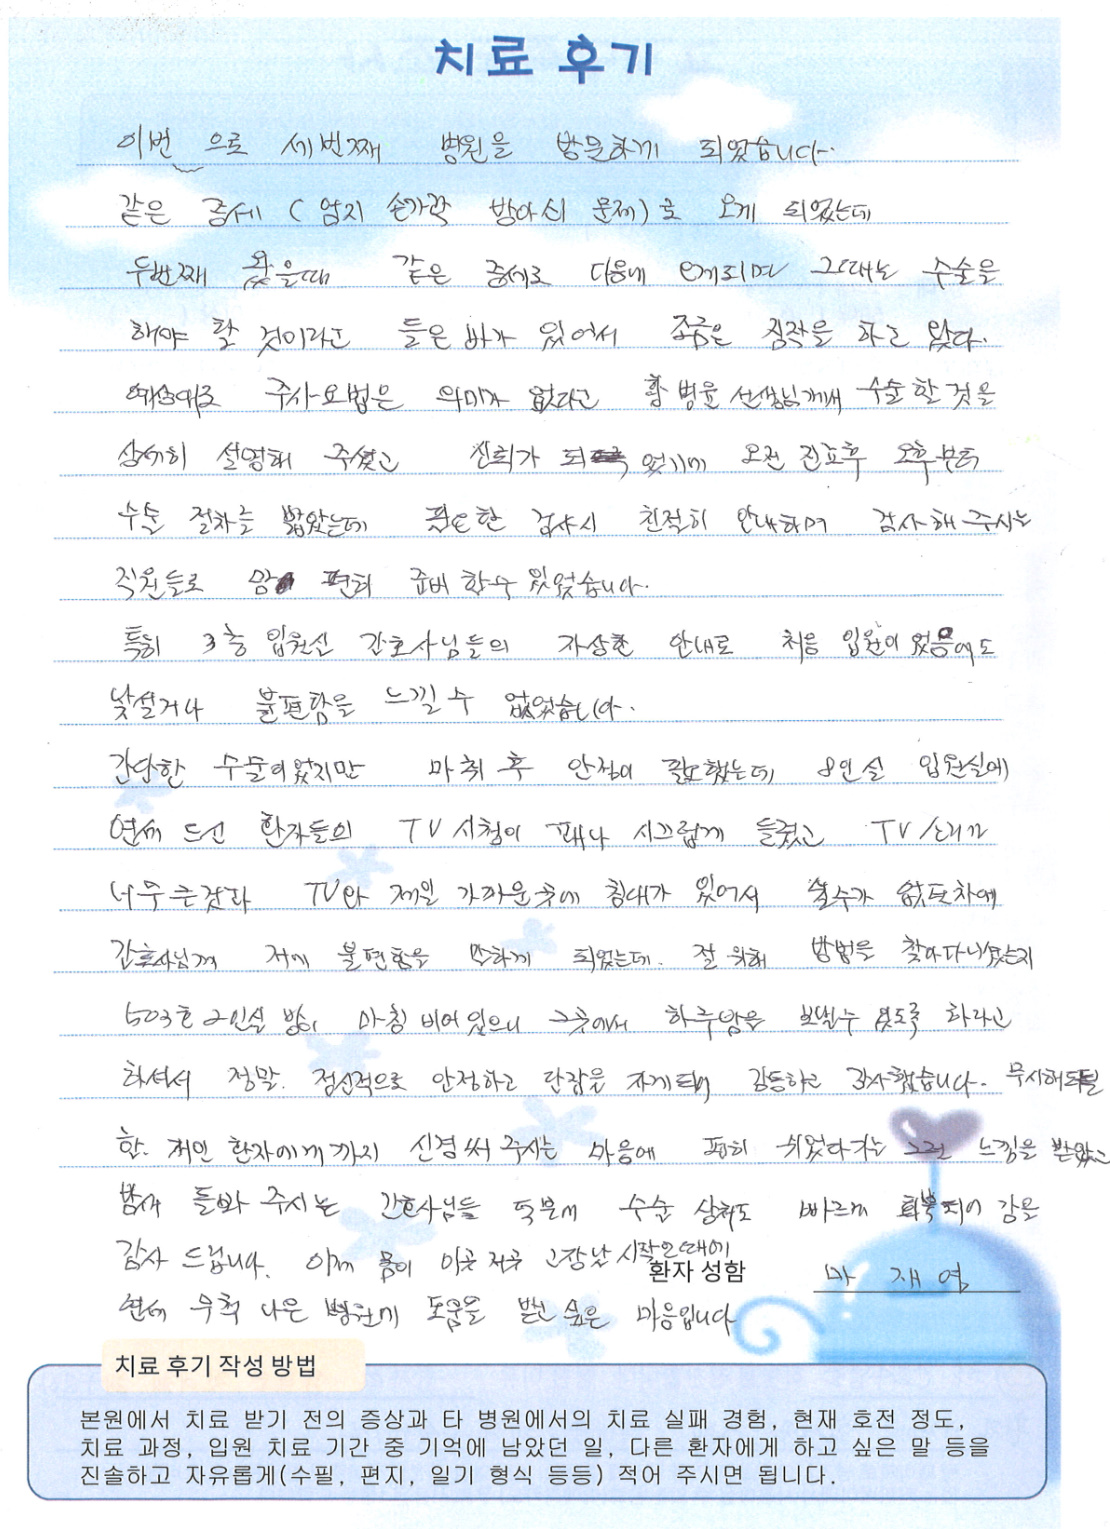 치료 후기
이번 으로 세번째 병원을 방문하게 되었습니다.
같은 증세 ( 엄지 손가락 방아쇠 문제)로 오게 되었는데
두번째 왔을때 같은 증세로 다음에 오게되며 그때는 수술을
해야 할 것이라고 들은 바가 있어서 조금은 짐작을 하고 왔다.
예상대로 주사요법은 의미가 없다고 황병윤 선생님께서 수술 할 것을
상세히 설명해 주셨고 신뢰가 되었기에 오전 진료후 오후부터
수술 절차를 밟았는데 필요한 검사시 친절히 안내하며 검사해 주시는
직원들로 맘 편히 준비 할수 있었습니다.
특히 3층 입원실 간호사님들의 자상한 안내로 처음 입원이었음에도
낯설거나 불편함을 느낄 수 없었습니다.
간단한 수술이었지만 마취 후 안정이 필요했는데 8인실 입원실에
연세 드신 환자들의 TV 시청이 꽤나 시끄럽게 들렸고 TV 소리가
너무 큰것과 TV와 제일 가까운 곳에 침대가 있어서 쉴수가 없던차에
간호사님께 저에 불편함을 말하게 되었는데. 절 위해 방법을 찾아다니셨는지
503호 2인실 방이 마침 비어 있으니 그곳에서 하루밤을 보낼수 있도록 하라고
하셔서 정말. 정신적으로 안정하고 단잠을 자게되어 감동하고 감사했습니다. 무시해도될
한. 개인 환자에게 까지 신경써 주시는 마음에 편히 쉬었다가는 그런 느낌을 받았고
밤새 돌봐 주시는 간호사님들 덕분에 수술 상처도 빠르게 회복되어 감을
감사 드립니다. 이제 몸이 이곳 저곳 고장날 시작인때에
환자 성함 마 재 영
연세 무척 나은 병원에 도움을 받고 싶은 마음입니다
치료 후기 작성 방법
본원에서 치료 받기 전의 증상과 타 병원에서의 치료 실패 경험, 현재 호전 정도,
치료 과정, 입원 치료 기간 중 기억에 남았던 일, 다른 환자에게 하고 싶은 말 등을
진솔하고 자유롭게(수필, 편지, 일기 형식 등등) 적어 주시면 됩니다.